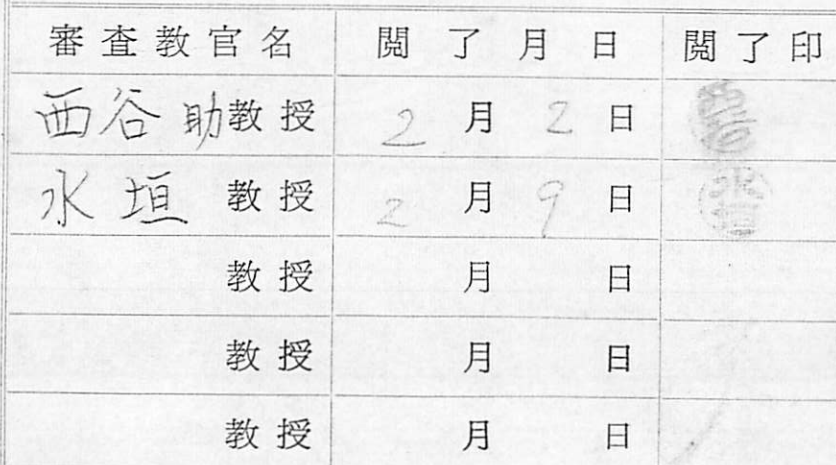 審査教官名 閲了月日 閲了印
西谷助教授 2月2日 西谷
水垣教授 2月9日 水垣
教授 月 日
教授 月 日
教授 月 日